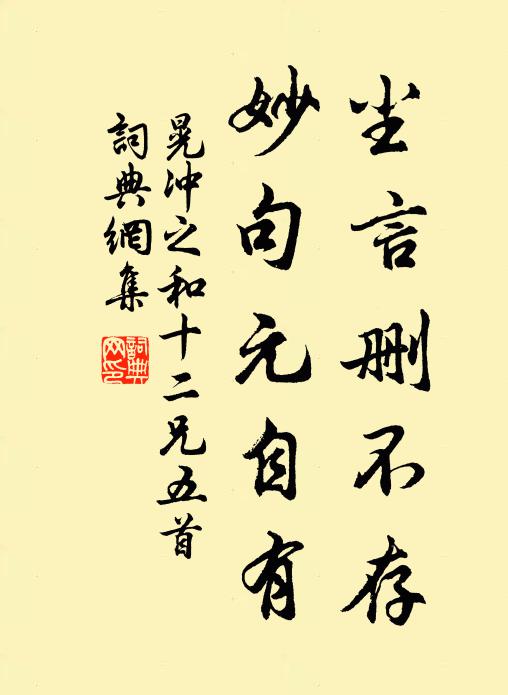 尘言删不存
妙句元自有
晁冲之和十二兄五首
詞典網集
詞典网印